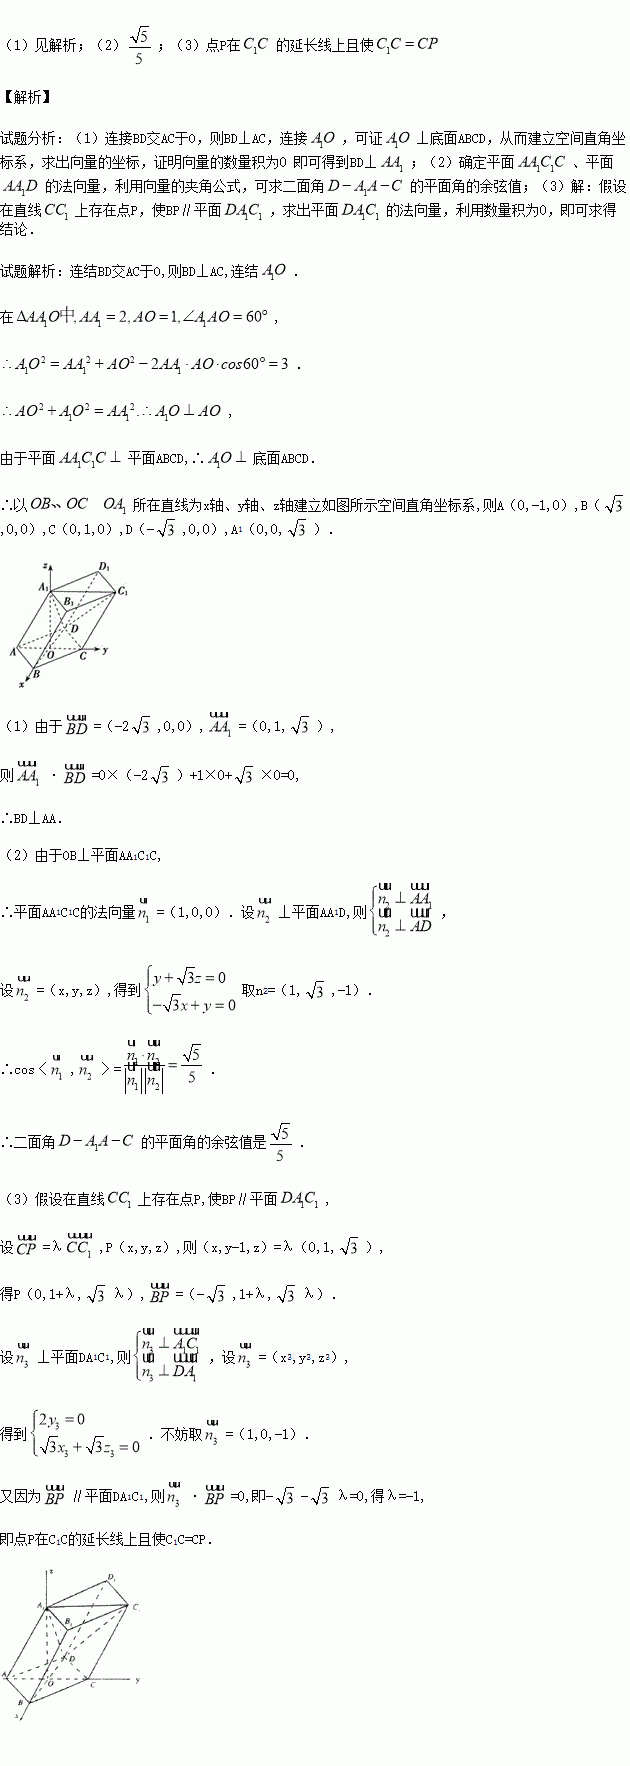 (1)见解析;(2)√5/5;(3)点P在C₁C的延长线上且使C₁C=CP
【解析】
试题分析:(1)连接BD交AC于O,则BD⊥AC,连接A₁O,可证A₁O⊥底面ABCD,从而建立空间直角坐
标系,求出向量的坐标,证明向量的数量积为0 即可得到BD⊥AA₁;(2)确定平面AA₁C₁C、平面
AA₁D的法向量,利用向量的夹角公式,可求二面角D−A₁A−C的平面角的余弦值;(3)解:假设
在直线CC₁上存在点P,使BP∥平面DA₁C₁,求出平面DA₁C₁的法向量,利用数量积为0,即可求得
结论.
试题解析:连结BD交AC于O,则BD⊥AC,连结A₁O.
在ΔAA₁O中,AA₁=2,AO=1,∠A₁AO=60°,
∴A₁O²=AA₁²+AO²−2AA₁·AO·cos60°=3.
∴AO²+A₁O²=AA₁².∴A₁O⊥AO,
由于平面AA₁C₁C⊥平面ABCD,∴A₁O⊥底面ABCD.
∴以OB、OC OA₁所在直线为x轴、y轴、z轴建立如图所示空间直角坐标系,则A(0,−1,0),B(√3
,0,0),C(0,1,0),D(−√3,0,0),A¹(0,0,√3).
z
D₁
A₁
C₁
B₁
D
A
O
C
y
B
x
(1)由于BD=(−2√3,0,0),AA₁=(0,1,√3),
则AA₁·BD=0×(−2√3)+1×0+√3×0=0,
∴BD⊥AA.
(2)由于OB⊥平面AA₁C₁C,
∴平面AA¹C¹C的法向量n₁=(1,0,0).设n₂⊥平面AA¹D,则{n₂⊥AA₁ n₂⊥AD,
设n₂=(x,y,z),得到{y+√3z=0 −√3x+y=0取n²=(1,√3,−1).
∴cos〈n₁,n₂〉=n₁·n₂/|n₁||n₂|=√5/5.
∴二面角D−A₁A−C的平面角的余弦值是√5/5.
(3)假设在直线CC₁上存在点P,使BP∥平面DA₁C₁,
设CP=λCC₁,P(x,y,z),则(x,y−1,z)=λ(0,1,√3),
得P(0,1+λ,√3λ),BP=(−√3,1+λ,√3λ).
设n₃⊥平面DA¹C¹,则{n₃⊥A₁C₁ n₃⊥DA₁,设n₃=(x³,y³,z³),
得到{2y₃=0 √3x₃+√3z₃=0.不妨取n₃=(1,0,−1).
又因为BP∥平面DA¹C¹,则n₃·BP=0,即−√3−√3λ=0,得λ=−1,
即点P在C₁C的延长线上且使C₁C=CP.
z
D₁
A₁
C₁
B₁
D
A
O
C
y
B
x